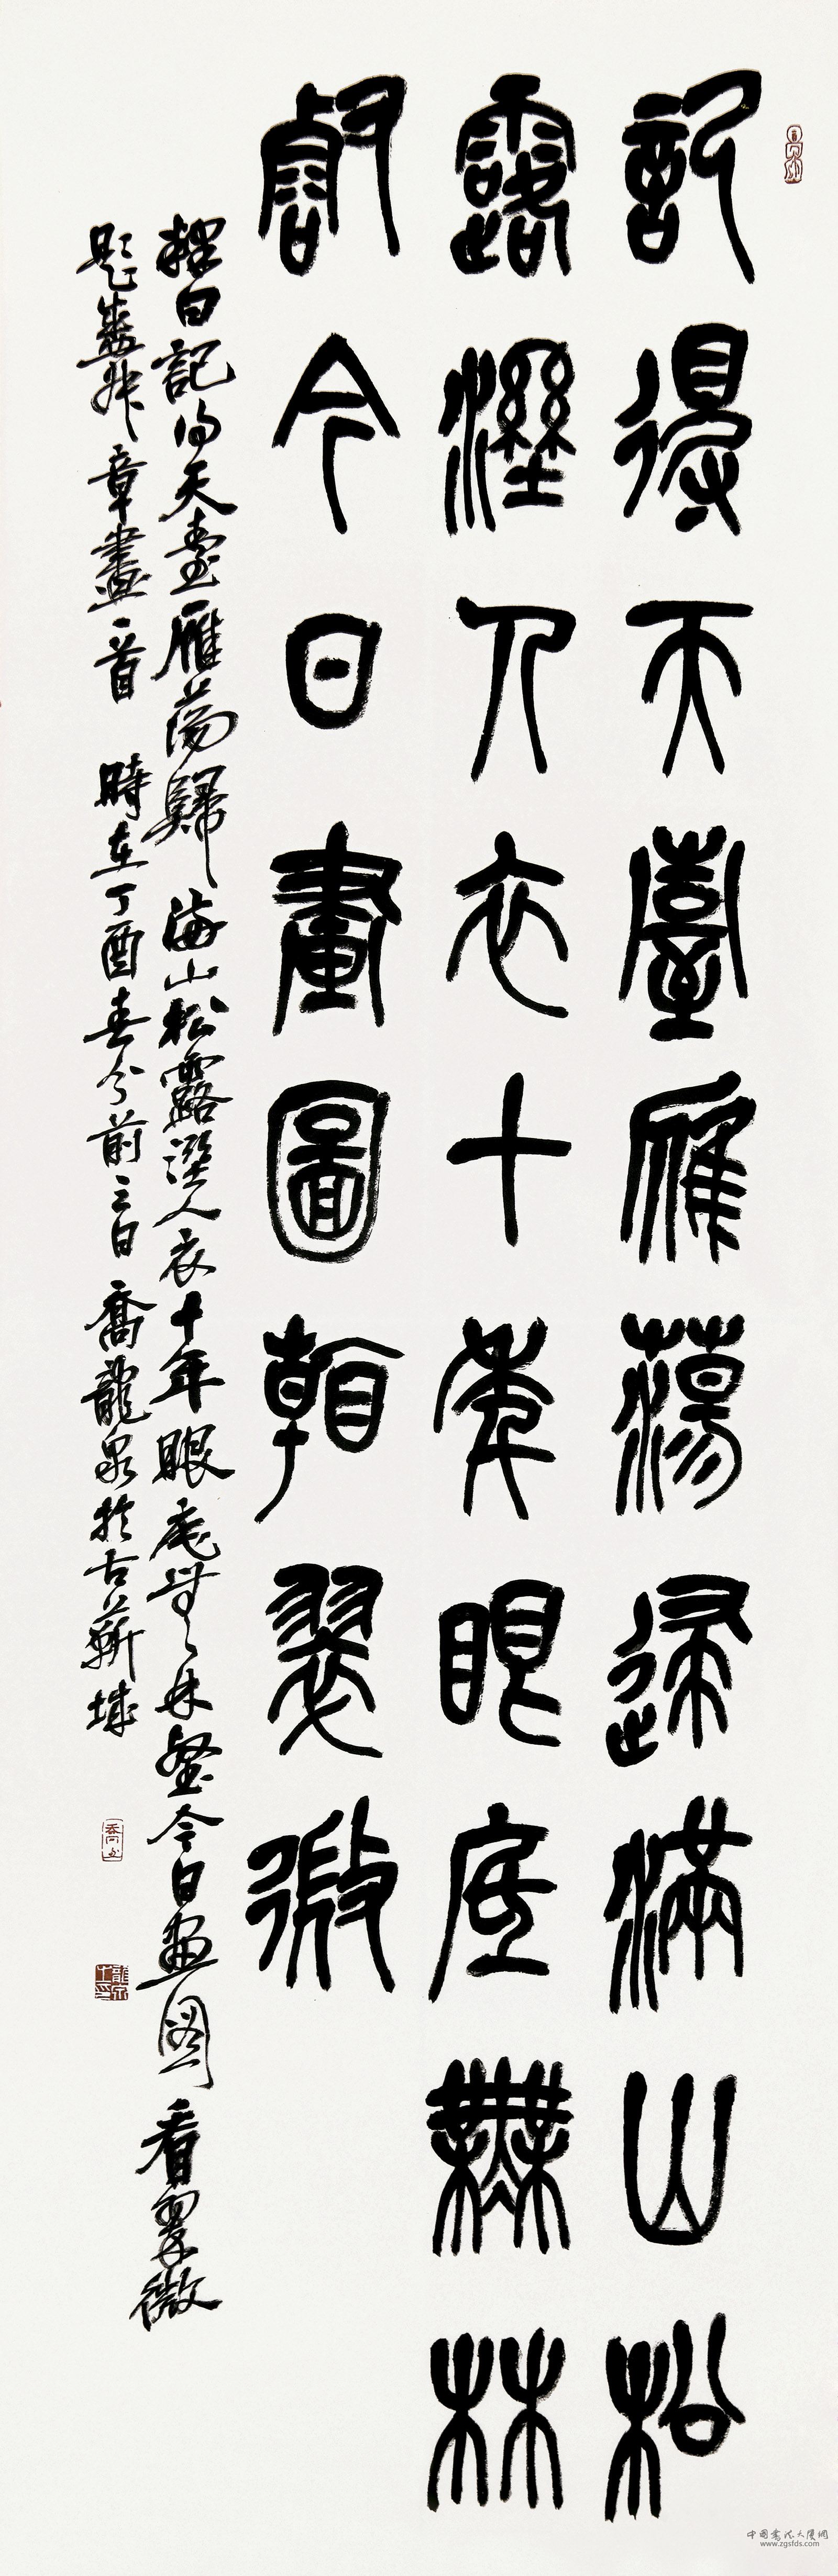 記得天臺雁蕩歸滿山松
露濕人衣十年眼底無林
壑今日畫圖看翠微
釋曰記得天臺雁蕩歸滿山松露濕人衣十年眼底無林壑今日畫圖看翠微
題盛叔章畫一首 時在丁酉春分前三日 喬龍泉於古蘄城
中國書法大廈網
www.zgsfds.com